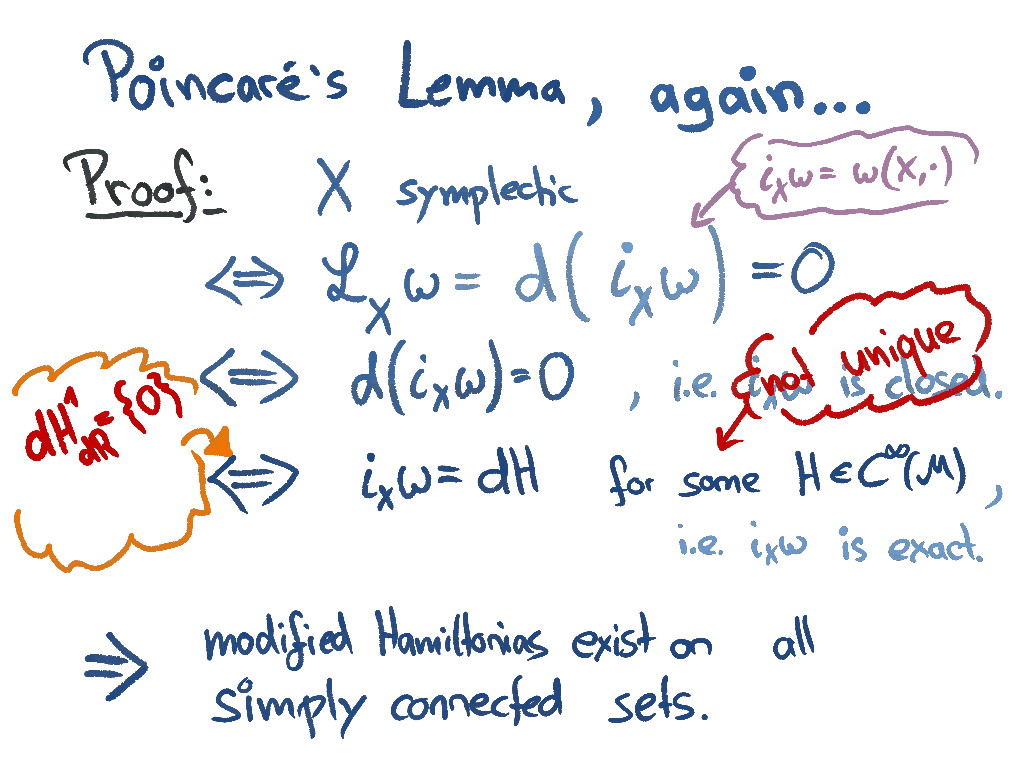 Poincaré's Lemma, again...
Proof: X symplectic
i_X ω = ω(X,·)
⟺ ℒ_X ω = d(i_X ω) = 0
not unique
⟺ d(i_X ω) = 0, i.e. i_X ω is closed.
dH¹_dR = {0}
⟺ i_X ω = dH for some H ∈ C^∞(M),
i.e. i_X ω is exact.
⇒ modified Hamiltonias exist on all
simply connected sets.